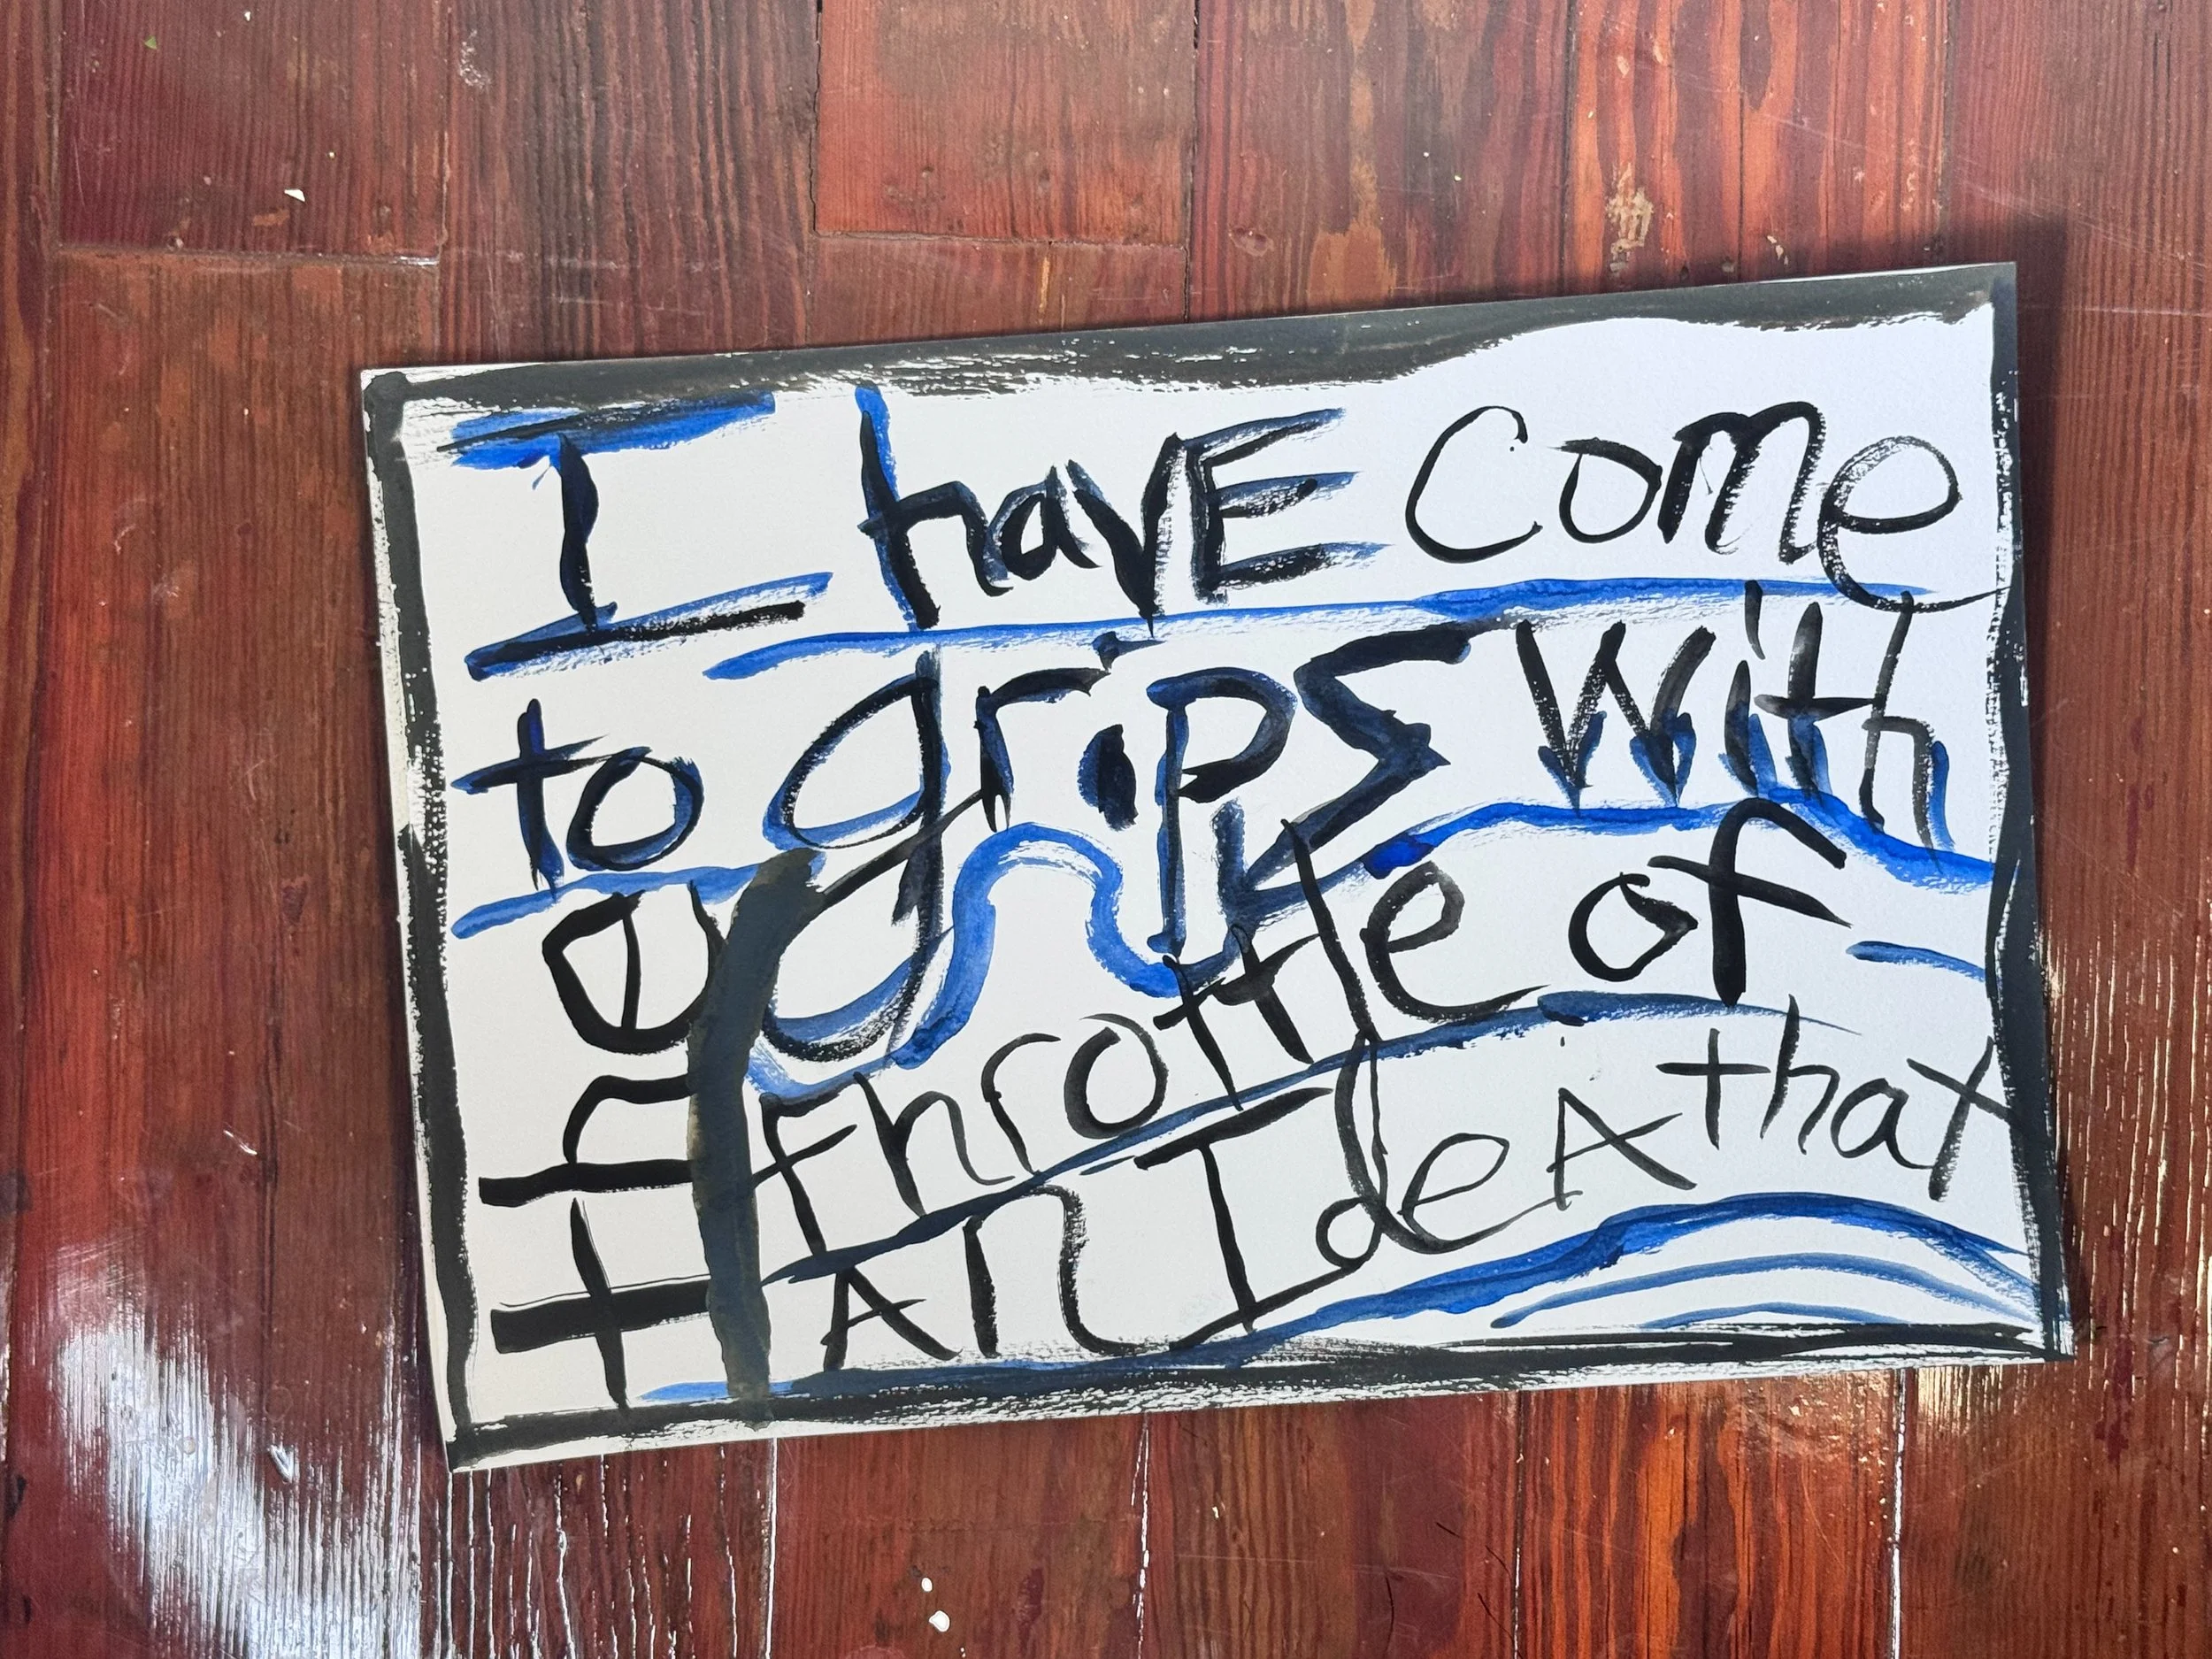 I havE come
to grips with
the
throttle of
An IdeA that